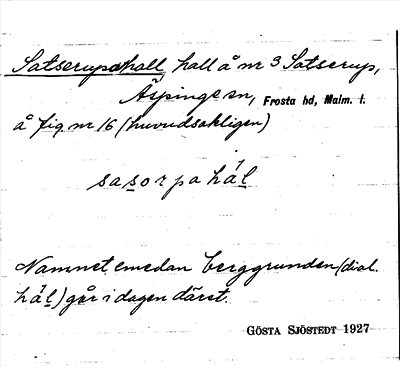 Satserupahall, hall å nr 3 Satserup,
Äspinge sn, Frosta hd, Malm. l.
å fig nr 16 (huvudsakligen)
sasorpahál
Namnet emedan berggrunden (dial.
hál) går i dagen därst.
GÖSTA SJÖSTEDT 1927